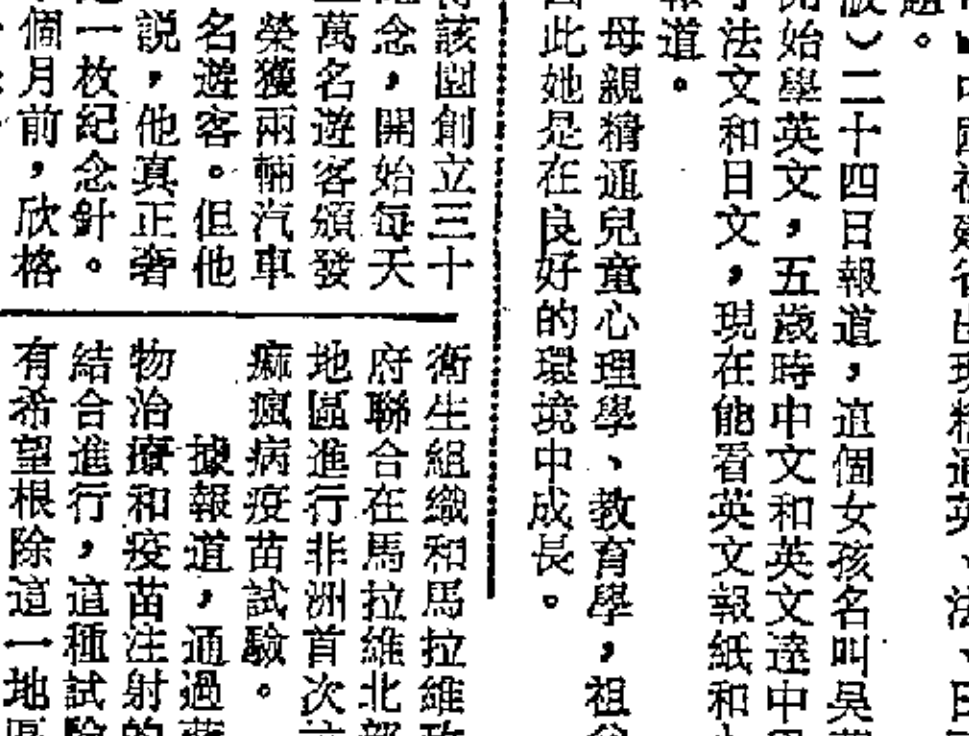 題。
中國福建省出現精通英、法、日
)二十四日報道,這個女孩名叫吳
開始學英文,五歲時中文和英文達中
法文和日文,現在能看英文報紙和
報道。
母親精通兒童心理學、教育學,祖父
因此她是在良好的環境中成長。
該園創立三十
念,開始每天
萬名遊客頒發
榮獲兩輛汽車
名遊客。但他
說,他真正奢
一枚紀念針。
個月前,欣格
衛生組織和馬拉維政
府聯合在馬拉維北部
地區進行非洲首次
痲瘋病疫苗試驗。
據報道,通過藥
物治療和疫苗注射的
結合進行,這種試驗
有希望根除這一地區